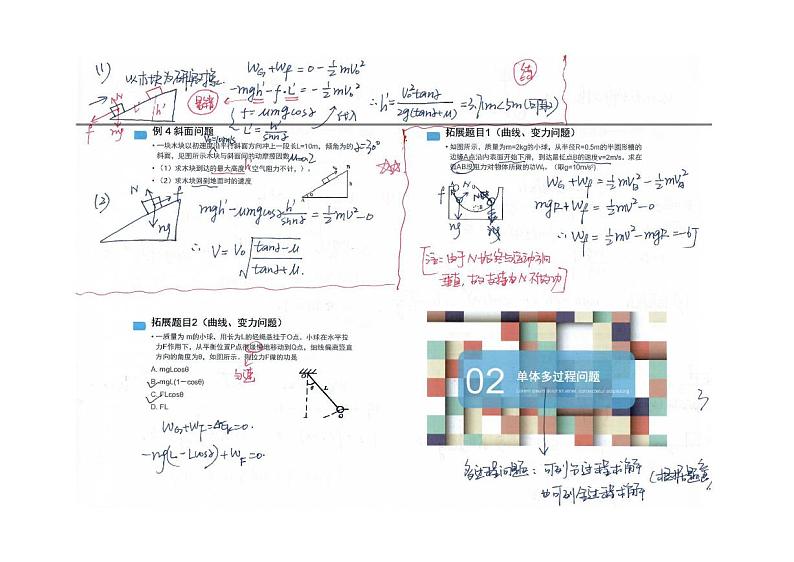 (1) 以木块为研究对象.
W_G + W_f = 0 - ½mv₀²
-mgh' - f·L' = -½mv₀²
f = μmgcosα
L' = h'/sinα
代入
∴ h' = v₀²tanα / 2g(tanα+μ) = 3.7m < 5m
例 4 斜面问题
v₀=10m/s
• 一块木块以初速度沿平行斜面方向冲上一段长L=10m，倾角为的 α=30°
斜面，见图所示木块与斜面间的动摩擦因数 μ=0.2
• （1）求木块到达的最大高度（空气阻力不计，）。
• （2）求木块回到地面时的速度
(2)
mgh' - μmgcosα h'/sinα = ½mv² - 0
∴ v = v₀ √(tanα-μ / tanα+μ)
拓展题目1（曲线、变力问题）
• 如图所示，质量m=2kg的小球，从半径R=0.5m的半圆形槽的
边缘A点沿内表面开始下滑，到达最低点B的速度v=2m/s。求在
弧AB段阻力对物体所做的功Wf。（取g=10m/s²）
W_G + W_f = ½mv_B² - ½mv_A²
mgR + W_f = ½mv² - 0
∴ W_f = ½mv² - mgR = -6J
注：由于N始终与运动方向
垂直，故支持力N不做功
拓展题目2（曲线、变力问题）
• 一质量为 m的小球，用长为L的轻绳悬挂于O点。小球在水平拉
力F作用下，从平衡位置P点很缓慢地移动到Q点，细线偏离竖直
方向的角度为θ，如图所示。则拉力F做的功是
匀速
A. mgLcosθ
B. mgL(1－cosθ)
C. FLcosθ
D. FL
W_G + W_F = ΔE_k = 0.
-mg(L - Lcosα) + W_F = 0.
02 单体多过程问题
多过程问题：可列分过程求解
也可列全过程求解